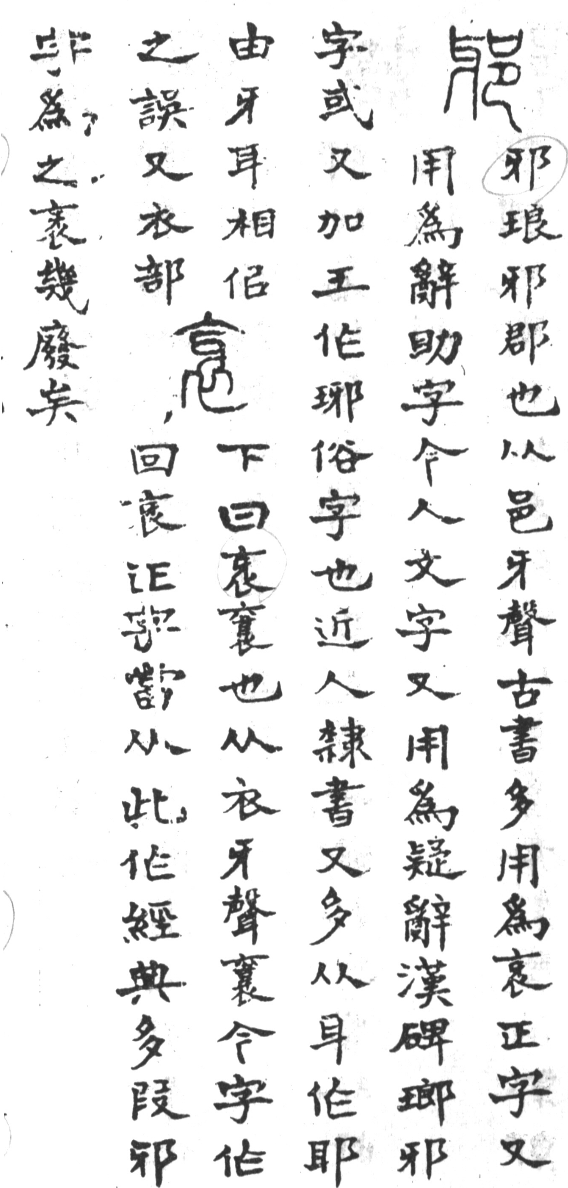 邪
邪琅邪郡也从邑牙聲古書多用爲衺正字又
用爲辭助字今人文字又用爲疑辭漢碑瑯邪
字或又加王作琊俗字也近人隸書又多从耳作耶
由牙耳相佀
之誤又衣部
衺
下曰衺也从衣牙聲今字作
回衺正字當从此作經典多叚邪
字爲之衺幾廢矣